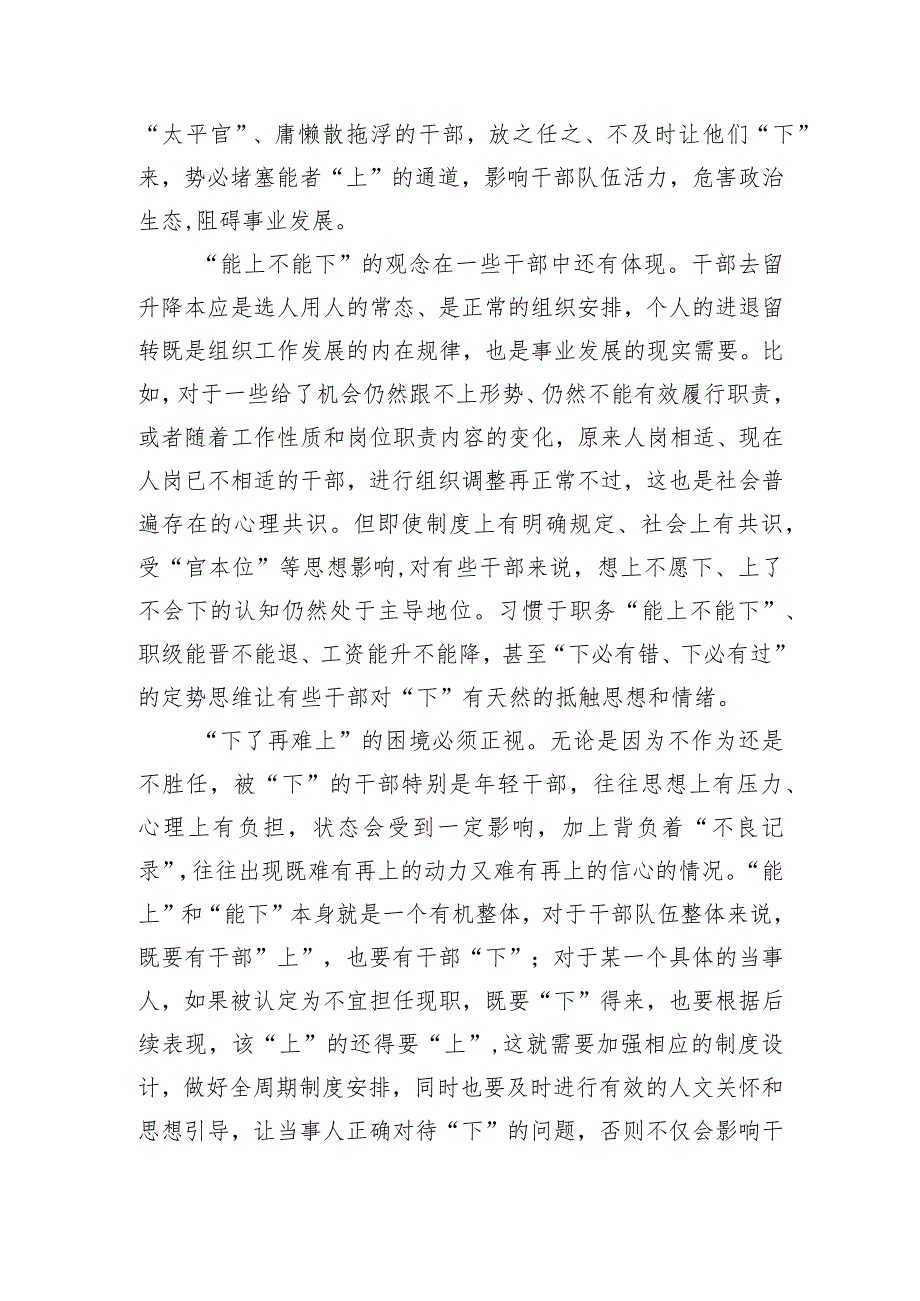 “太平官”、庸懒散拖浮的干部，放之任之、不及时让他们“下”
来，势必堵塞能者“上”的通道，影响干部队伍活力，危害政治
生态,阻碍事业发展。
“能上不能下”的观念在一些干部中还有体现。干部去留
升降本应是选人用人的常态、是正常的组织安排，个人的进退留
转既是组织工作发展的内在规律，也是事业发展的现实需要。比
如，对于一些给了机会仍然跟不上形势、仍然不能有效履行职责，
或者随着工作性质和岗位职责内容的变化，原来人岗相适、现在
人岗已不相适的干部，进行组织调整再正常不过，这也是社会普
遍存在的心理共识。但即使制度上有明确规定、社会上有共识，
受“官本位”等思想影响,对有些干部来说，想上不愿下、上了
不会下的认知仍然处于主导地位。习惯于职务“能上不能下”、
职级能晋不能退、工资能升不能降，甚至“下必有错、下必有过”
的定势思维让有些干部对“下”有天然的抵触思想和情绪。
“下了再难上”的困境必须正视。无论是因为不作为还是
不胜任，被“下”的干部特别是年轻干部，往往思想上有压力、
心理上有负担，状态会受到一定影响，加上背负着“不良记
录”,往往出现既难有再上的动力又难有再上的信心的情况。“能
上”和“能下”本身就是一个有机整体，对于干部队伍整体来说，
既要有干部”上”，也要有干部“下”；对于某一个具体的当事
人，如果被认定为不宜担任现职，既要“下”得来，也要根据后
续表现，该“上”的还得要“上”,这就需要加强相应的制度设
计，做好全周期制度安排，同时也要及时进行有效的人文关怀和
思想引导，让当事人正确对待“下”的问题，否则不仅会影响干